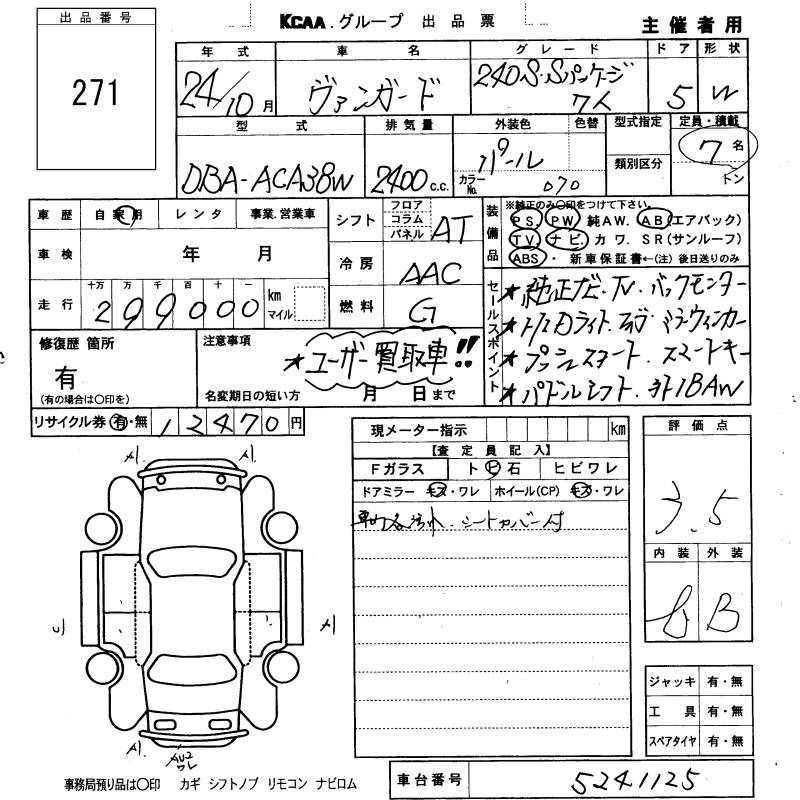 出品番号
271
KCAA.グループ 出品票
主催者用
年式 車名 グレード ドア 形状
24/10月 ヴァンガード 240S・Sパッケージ 7人 5 W
型式 排気量 外装色 色替 型式指定 定員・積載
DBA-ACA38W 2400c.c. パール 類別区分 7名
カラーNo. 070 トン
車歴 自家用 レンタ 事業.営業車
シフト フロア コラム パネル AT
装備品
※純正のみ○印をつけて下さい。
PS. PW 純AW. AB(エアバック)
TV. ナビ. カワ. SR(サンルーフ)
ABS・新車保証書←(注) 後日送りのみ
車検 年 月
冷房 AAC
走行 十万 万 千 百 十 一
299000 km マイル
燃料 G
セールスポイント
★純正ナビ.TV.バックモニター
★HIDライト.
★プッシュスタート.スマートキー
★パドルシフト.
修復歴 箇所
有
(有の場合は○印を)
注意事項
★ユーザー買取車!!
名変期日の短い方 月 日まで
リサイクル券 有・無 12470円
現メーター指示 km
【査定員記入】
Fガラス トビ石 ヒビワレ
ドアミラー キズ・ワレ ホイール(CP) キズ・ワレ
シートカバー付
評価点
3.5
内装 外装
B
A1 A1
A1
AU2
ワレ
ジャッキ 有・無
工具 有・無
スペアタイヤ 有・無
事務局預り品は○印 カギ シフトノブ リモコン ナビロム
車台番号 5241125